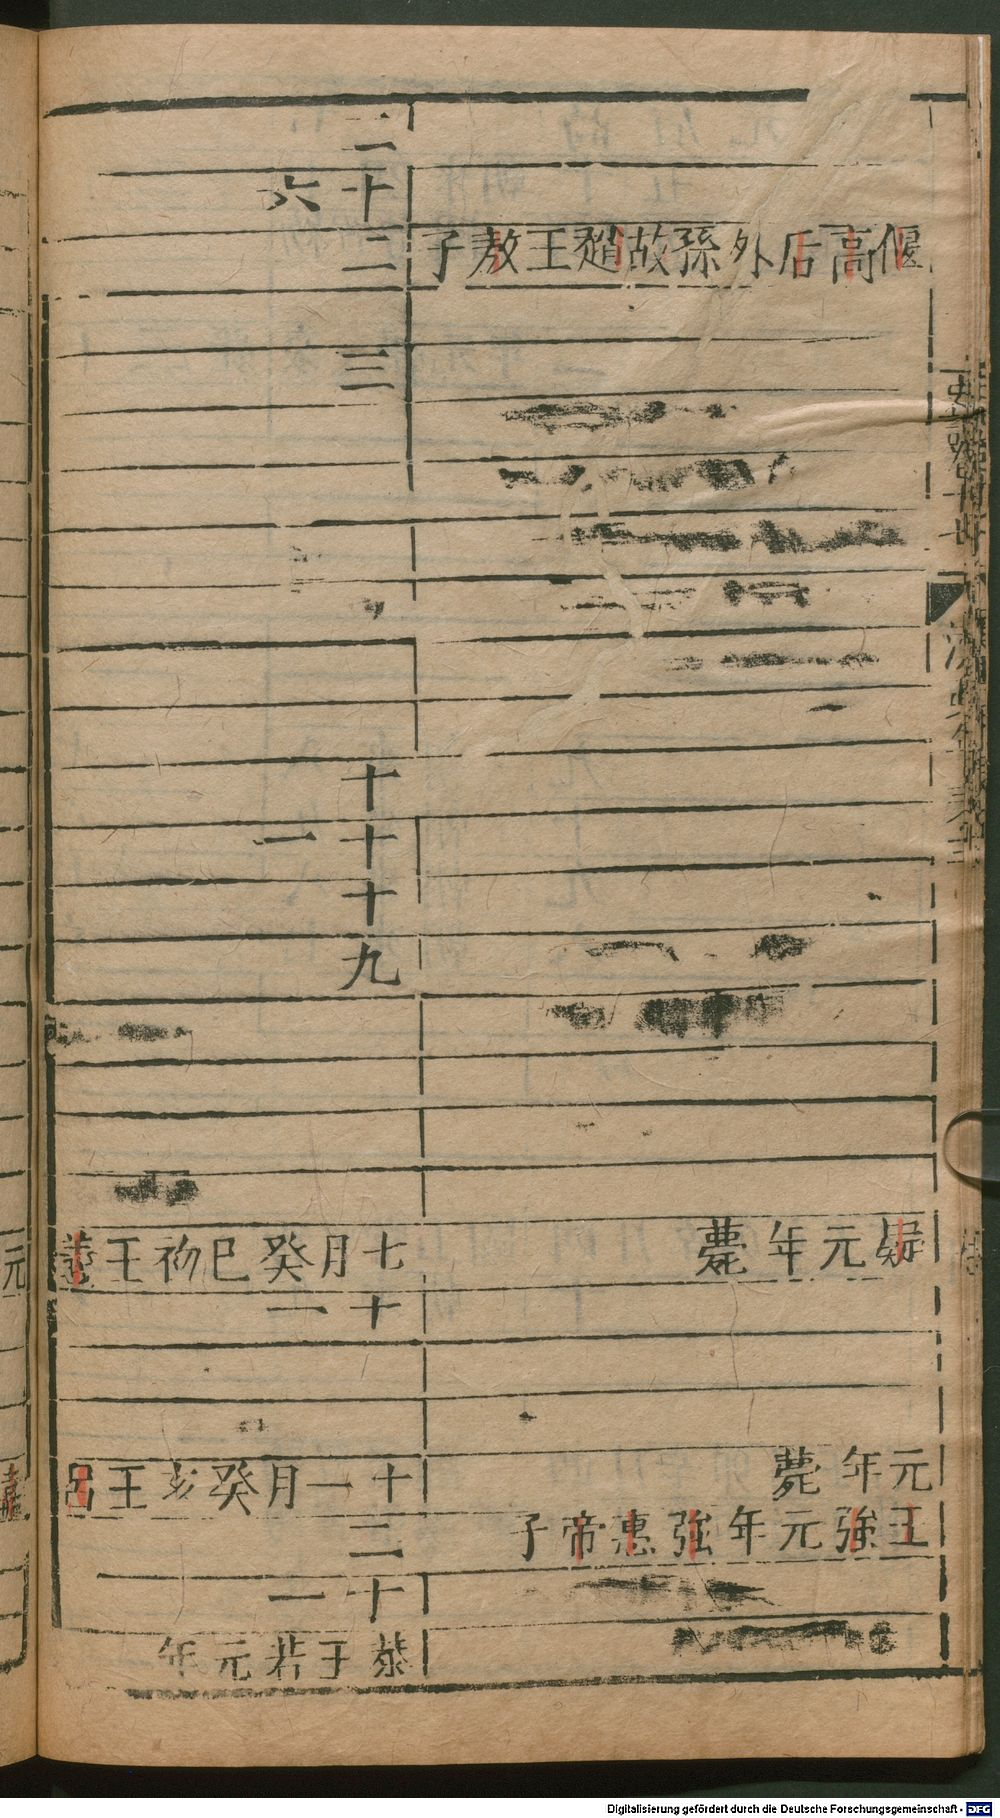 偃高后外孫故趙王敖子
疑元年薨
元年薨
王強元年強惠帝子
二
十六
二
三
十
十一
十
九
七月癸巳初王義
十一
十一月癸亥王呂
二
十一
恭王若元年
元
嘉
Digitalisierung gefördert durch die Deutsche Forschungsgemeinschaft - DFG